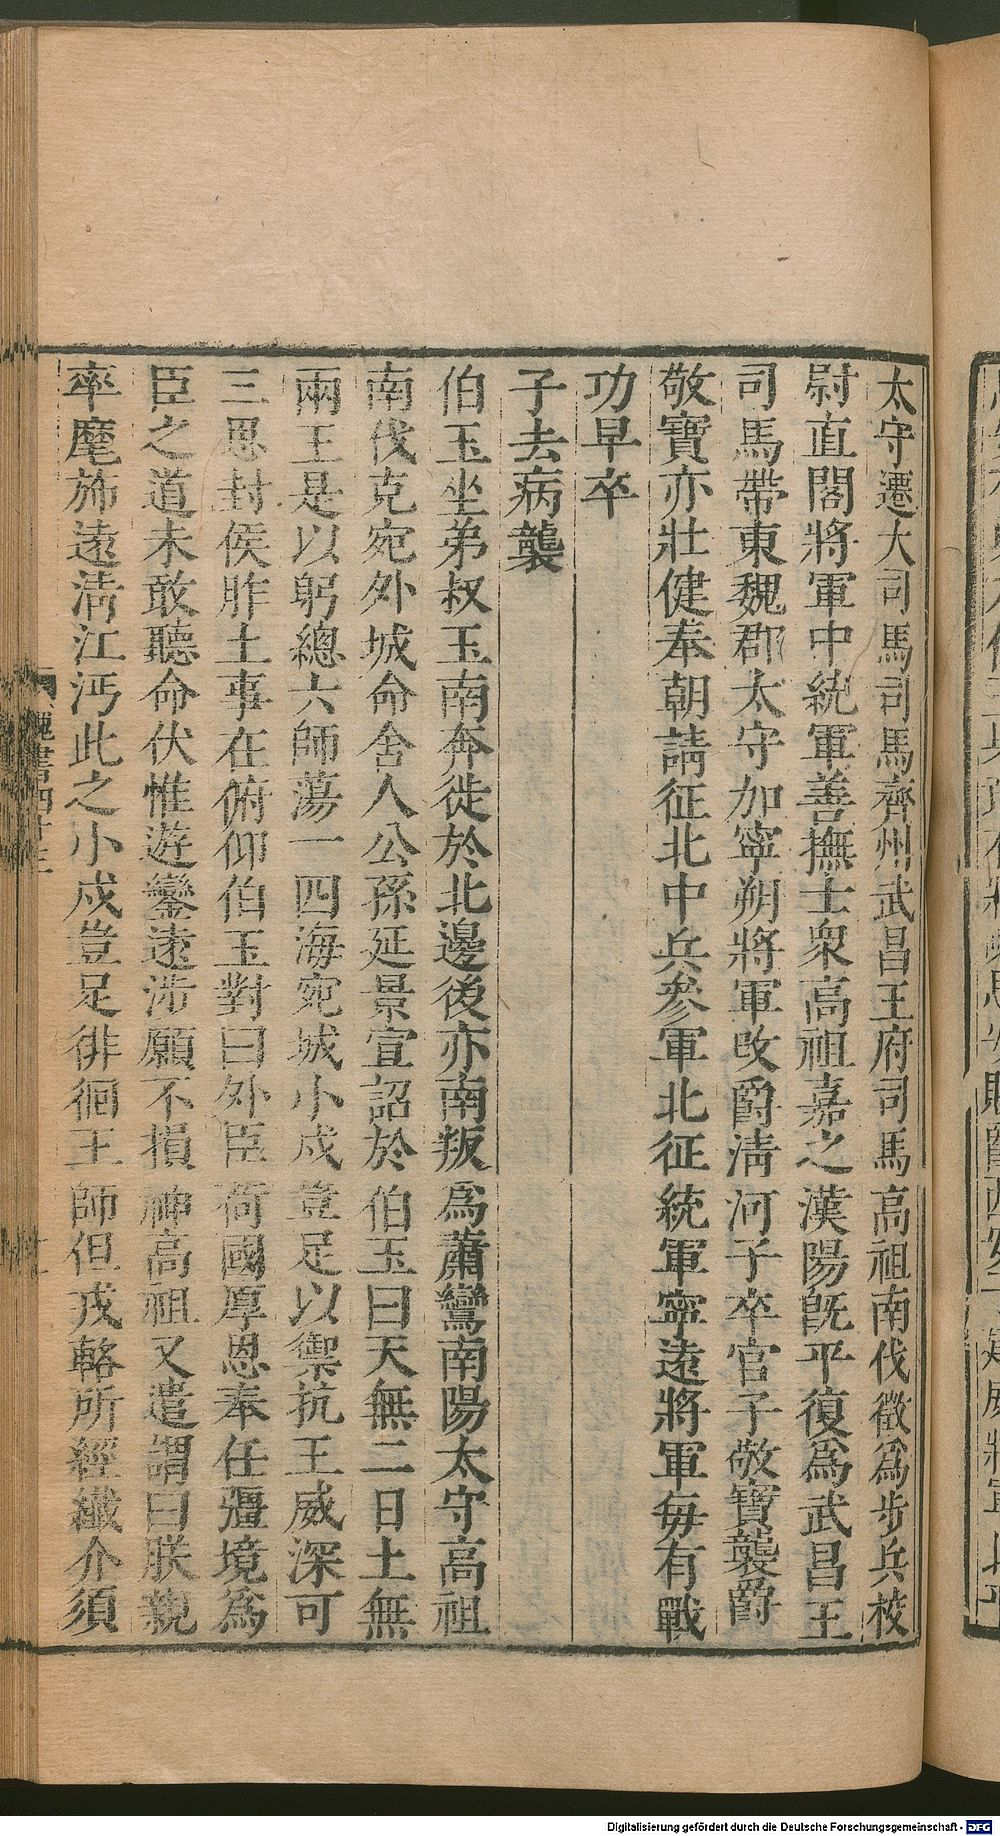 太守遷大司馬司馬齊州武昌王府司馬高祖南伐徵為步兵校
尉直閤將軍中統軍善撫士衆高祖嘉之漢陽旣平復爲武昌王
司馬帶東魏郡太守加寧朔將軍改爵清河子卒官子敬寶襲爵
敬寶亦壯健奉朝請征北中兵參軍北征統軍寧遠將軍每有戰
功早卒
子去病襲
伯玉坐弟叔玉南奔徙於北邊後亦南叛爲蕭鸞南陽太守高祖
南伐克宛外城命舍人公孫延景宣詔於伯玉曰天無二日土無
兩王是以躬總六師蕩一四海宛城小戍豈足以禦抗王威深可
三思封侯胙土事在俯仰伯玉對曰外臣荷國厚恩奉任疆境爲
臣之道未敢聽命伏惟遊鑾遠涉願不損神高祖又遣謂曰朕親
率麾旆遠清江沔此之小戍豈足徘徊王師但戎輅所經纖介須
魏書
Digitalisierung gefördert durch die Deutsche Forschungsgemeinschaft - DFG